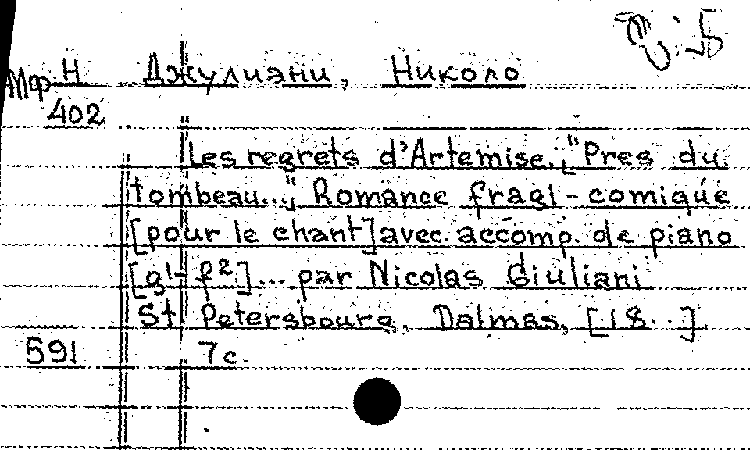 Мф Н Джулиани, Николо
402
Les regrets d'Artemise. ["Pres du
tombeau..."] Romance fragi-comique
[pour le chant] avec accomp. de piano
[g¹-f²]... par Nicolas Giuliani
St Petersbourg, Dalmas, [18..]
591 7c.